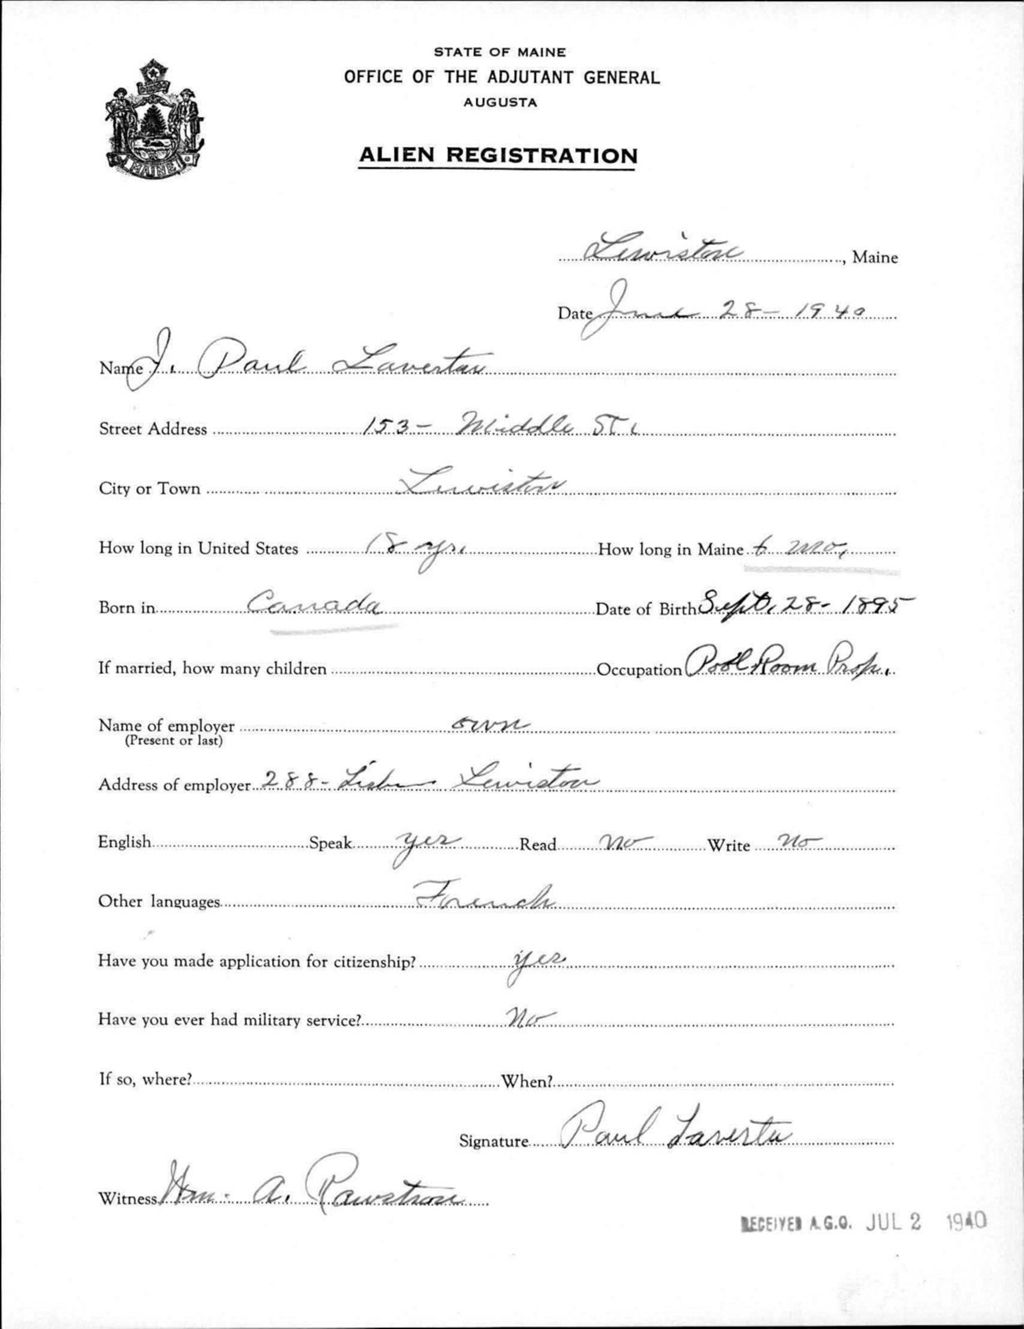 STATE OF MAINE
OFFICE OF THE ADJUTANT GENERAL
AUGUSTA
ALIEN REGISTRATION
MAINE
Lewiston, Maine
Date June 28 - 1940
Name J. Paul Lavertu
Street Address 153 - Middle St.
City or Town Lewiston
How long in United States 18 yr. How long in Maine 6 mo.
Born in Canada Date of Birth Sept. 28 - 1895
If married, how many children Occupation Pool Room Prop.
Name of employer own
(Present or last)
Address of employer 288 - Lisbon Lewiston
English Speak yes Read No Write No
Other languages French
Have you made application for citizenship? yes
Have you ever had military service? No
If so, where? When?
Signature Paul Lavertu
Witness Wm. A. Rawstron
RECEIVED A.G.O. JUL 2 1940